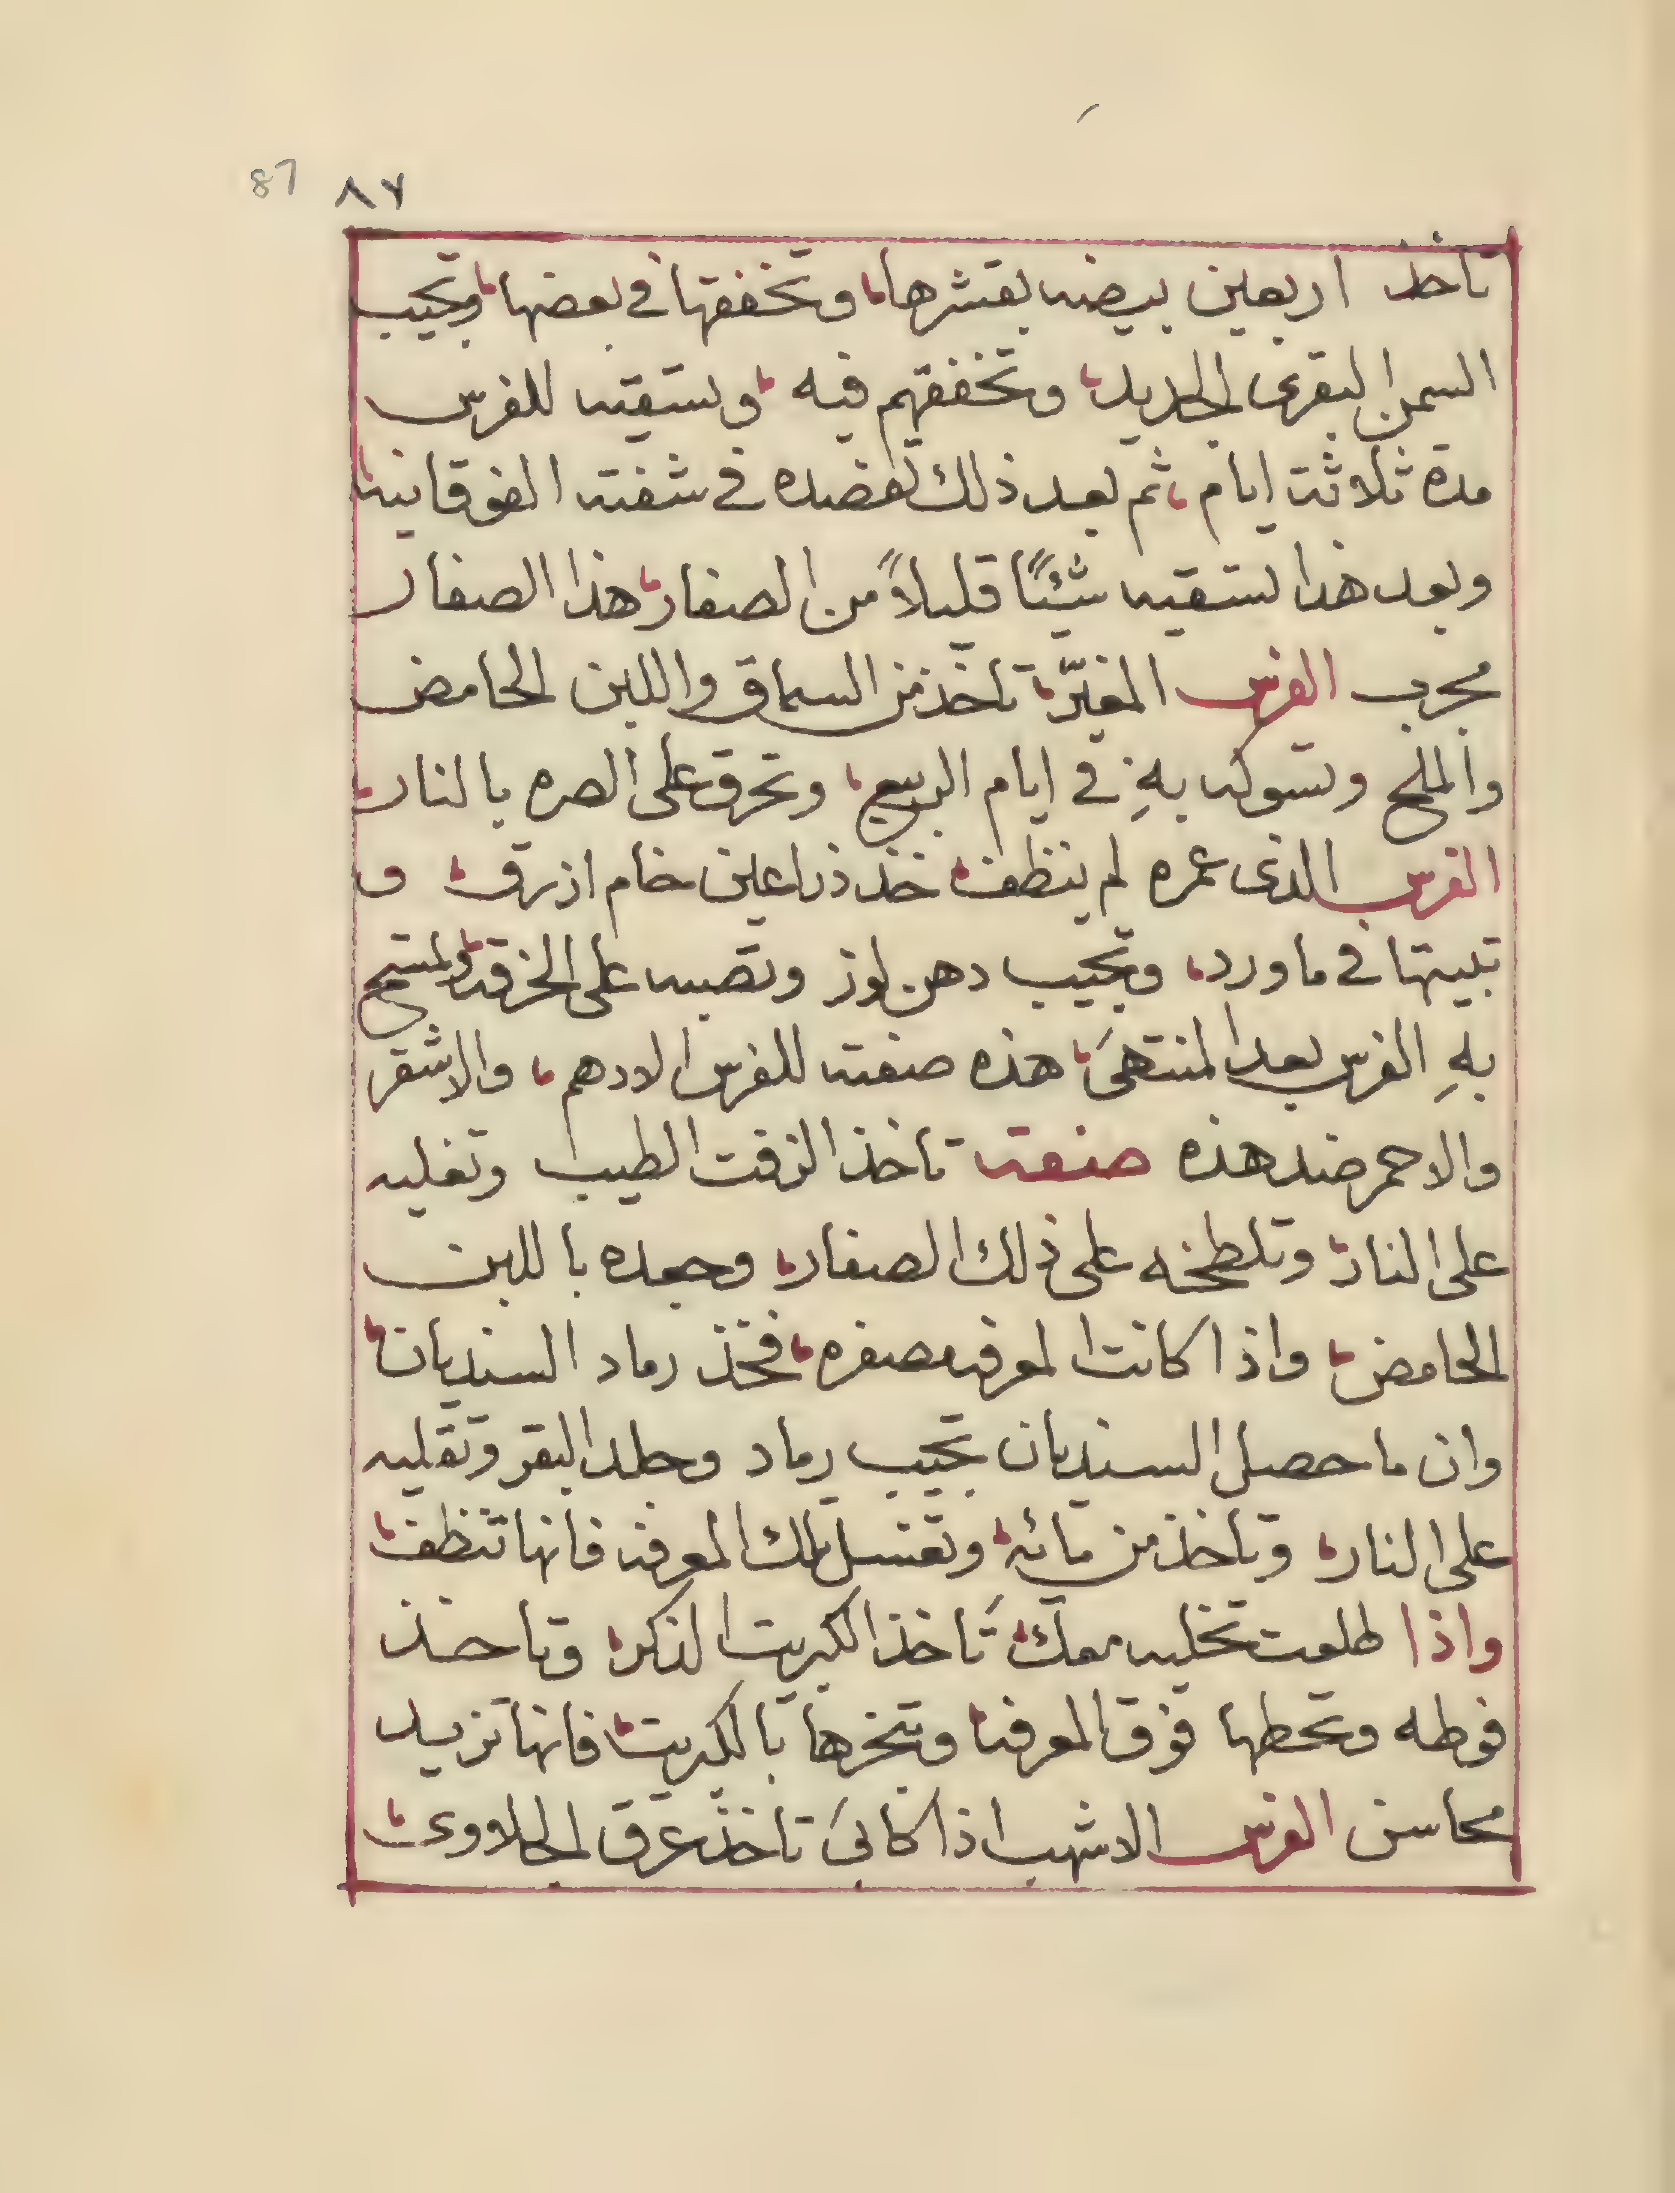 87 ٨٧
تاخد اربعين بيضه بقشرها، وتخفقها في بعضها، وتجيب
السمن البقرى الجديد، وتخفقهم فيه، وتسقيه للفرس
مدة ثلاثة ايام، ثم بعد ذلك تفصده في شفته الفوقانيه،
وبعد هذا تسقيه شئًا قليلاً من الصفار، هذا الصفار
مجرب الفرس المغبّر، تاخذ من السماق واللبن الحامض
والملح وتسوكه بهِ في ايام الربيع، وتحرق على الصره بالنار،
الفرس الذى عمره لم ينظف، خذ ذراعين خام ازرق، و
تبيتها في ماورد، وتجيب دهن لوز وتصبه على الخرقه، وتمسح
بهِ الفرس بعد المنتهىَ، هذه صنعته للفرس الادهم، والاشقر
والاحمر ضد هذه صنعته تاخذ الزفت الطيب وتغليه
على النار، وتلطخه على ذلك الصفار، وجعده باللبن
الحامض، واذا كانت المعرفه مصفره، فخذ رماد السنديان،
وان ما حصل السنديان تجيب رماد وجلد البقر وتقليه
على النار، وتاخذ من مائه، وتغسل تلك المعرفه فانها تنظف،
واذا طلعت تخليه معكَ، تاخذ الكبريت الذكر، وتاخذ
فوطه وتحطها فوق المعرفه، وتبخرها بالكبريت، فانها تزيد
محاسن الفرس الاشهب اذا كانَ تاخذ عرق الحلاوى،